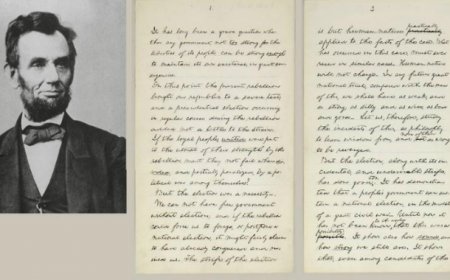 1.
It has long been a grave question whe-
ther any government, not too strong for the
liberties of its people, can be strong enough
to maintain its own existence, in great emer-
gencies.
On this point the present rebellion
brought our republic to a severe test;
and a presidential election occurring
in regular course during the rebellion
added not a little to the strain.
If the loyal people, united, were put
to the utmost of their strength by the
rebellion, must they not fail when di-
vided, and partially paralyzed, by a po-
litical war among themselves?
But the election was a necessity.
We can not have free government
without elections; and if the rebellion
could force us to forego, or postpone a
national election, it might fairly claim
to have already conquered and ruin-
ed us. The strife of the election
is but human nature practically
applied to the facts of the case. What
has occurred in this case, must ever
recur in similar cases. Human nature
will not change. In any future great
national trial, compared with the men
of this, we shall have as weak, and
as strong; as silly and as wise; as bad
and good. Let us, therefore, study
the incidents of this, as philosophy
to learn wisdom from, and none of them as wrongs
to be revenged.
But the election, along with its in-
cidental, and undesirable strife,
has done good too. It has demonstra-
ted that a people's government can sus-
tain a national election, in the midst
of a great civil war. Until now it
has not been known to the world that this was a
possibility. It shows also how sound and
how strong we still are. It shows
that, even among candidates of the